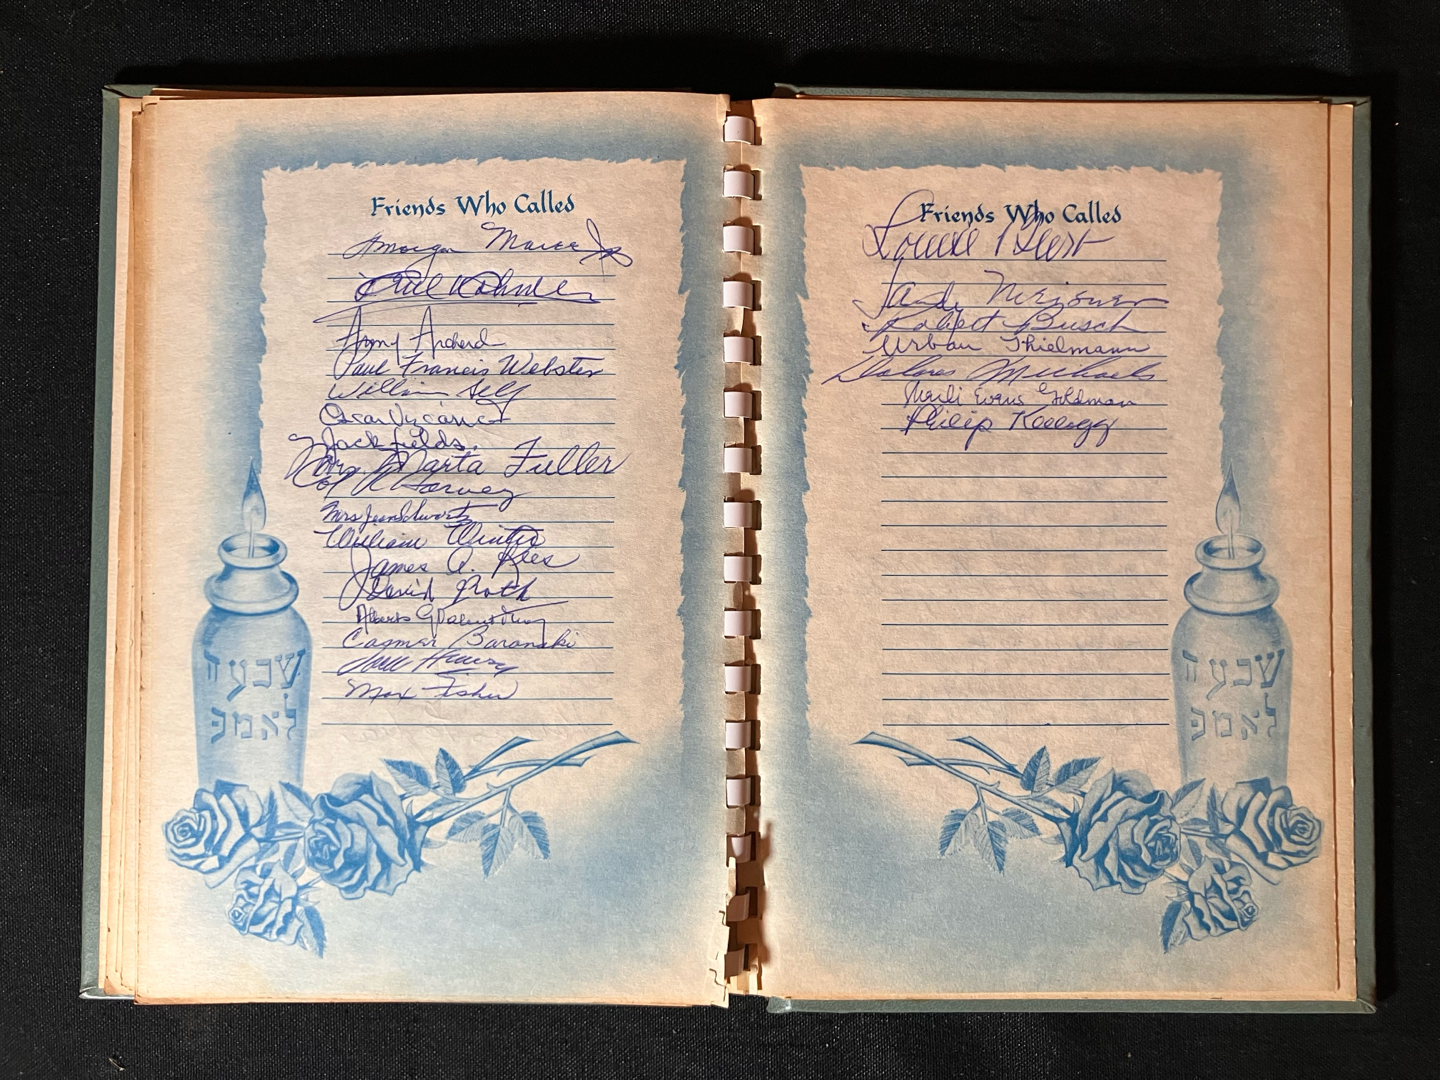 Friends Who Called
Morgan Jr
Paul Kohner
Army Archerd
Paul Francis Webster
William Self
Oscar
Jack Fields
Mrs. Marta Fuller
Col Harvey
Mrs Jean Schwartz
William Winter
James A. Rees
David Groth
Alberts G
Baranski
Max Fisher
שבעה
לאמפ
Friends Who Called
Louise
Sandy
Robert Busch
Urban Thielmann
Dolores Michaels
Marli Evans Goldman
Philip Kellogg
שבעה
לאמפ